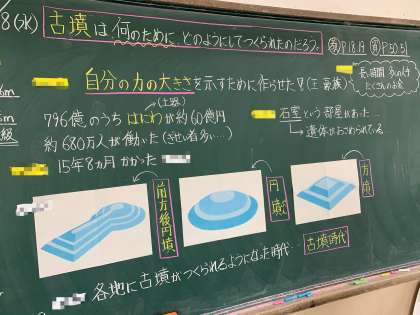 8(水) 古墳は何のために どのようにしてつくられたのだろう。
教P.18.19 資P.50.51
6m
自分の力の大きさを示すために作らせた
長い時間 多くの人
たくさんのお金
(土器)
796億のうち はにわが約60億円
約680万人が働いた(ぎせい者多い…)
15年8ヵ月 かかった
石室という部屋があった…
→遺体がおさめられている
前方後円墳
円墳
方墳
古墳時代
各地に古墳がつくられるようになった時代